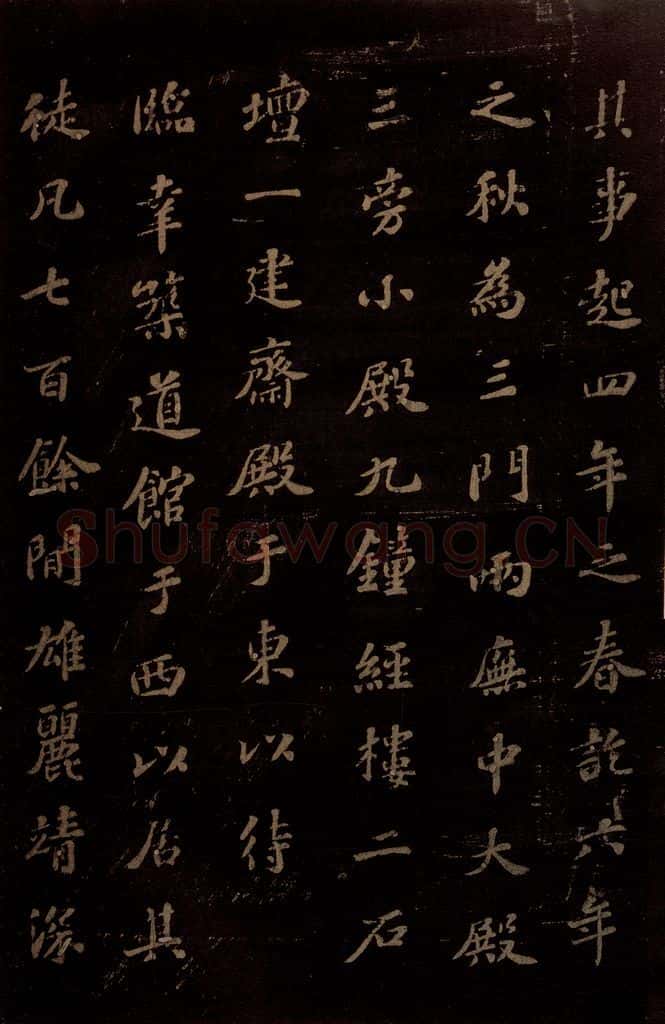 其事起四年之春訖六年
之秋為三門兩廡中大殿
三旁小殿九鐘經樓二石
壇一建齋殿于東以待
臨幸築道館于西以居其
徒凡七百餘間雄麗靚深
Shufawang.CN